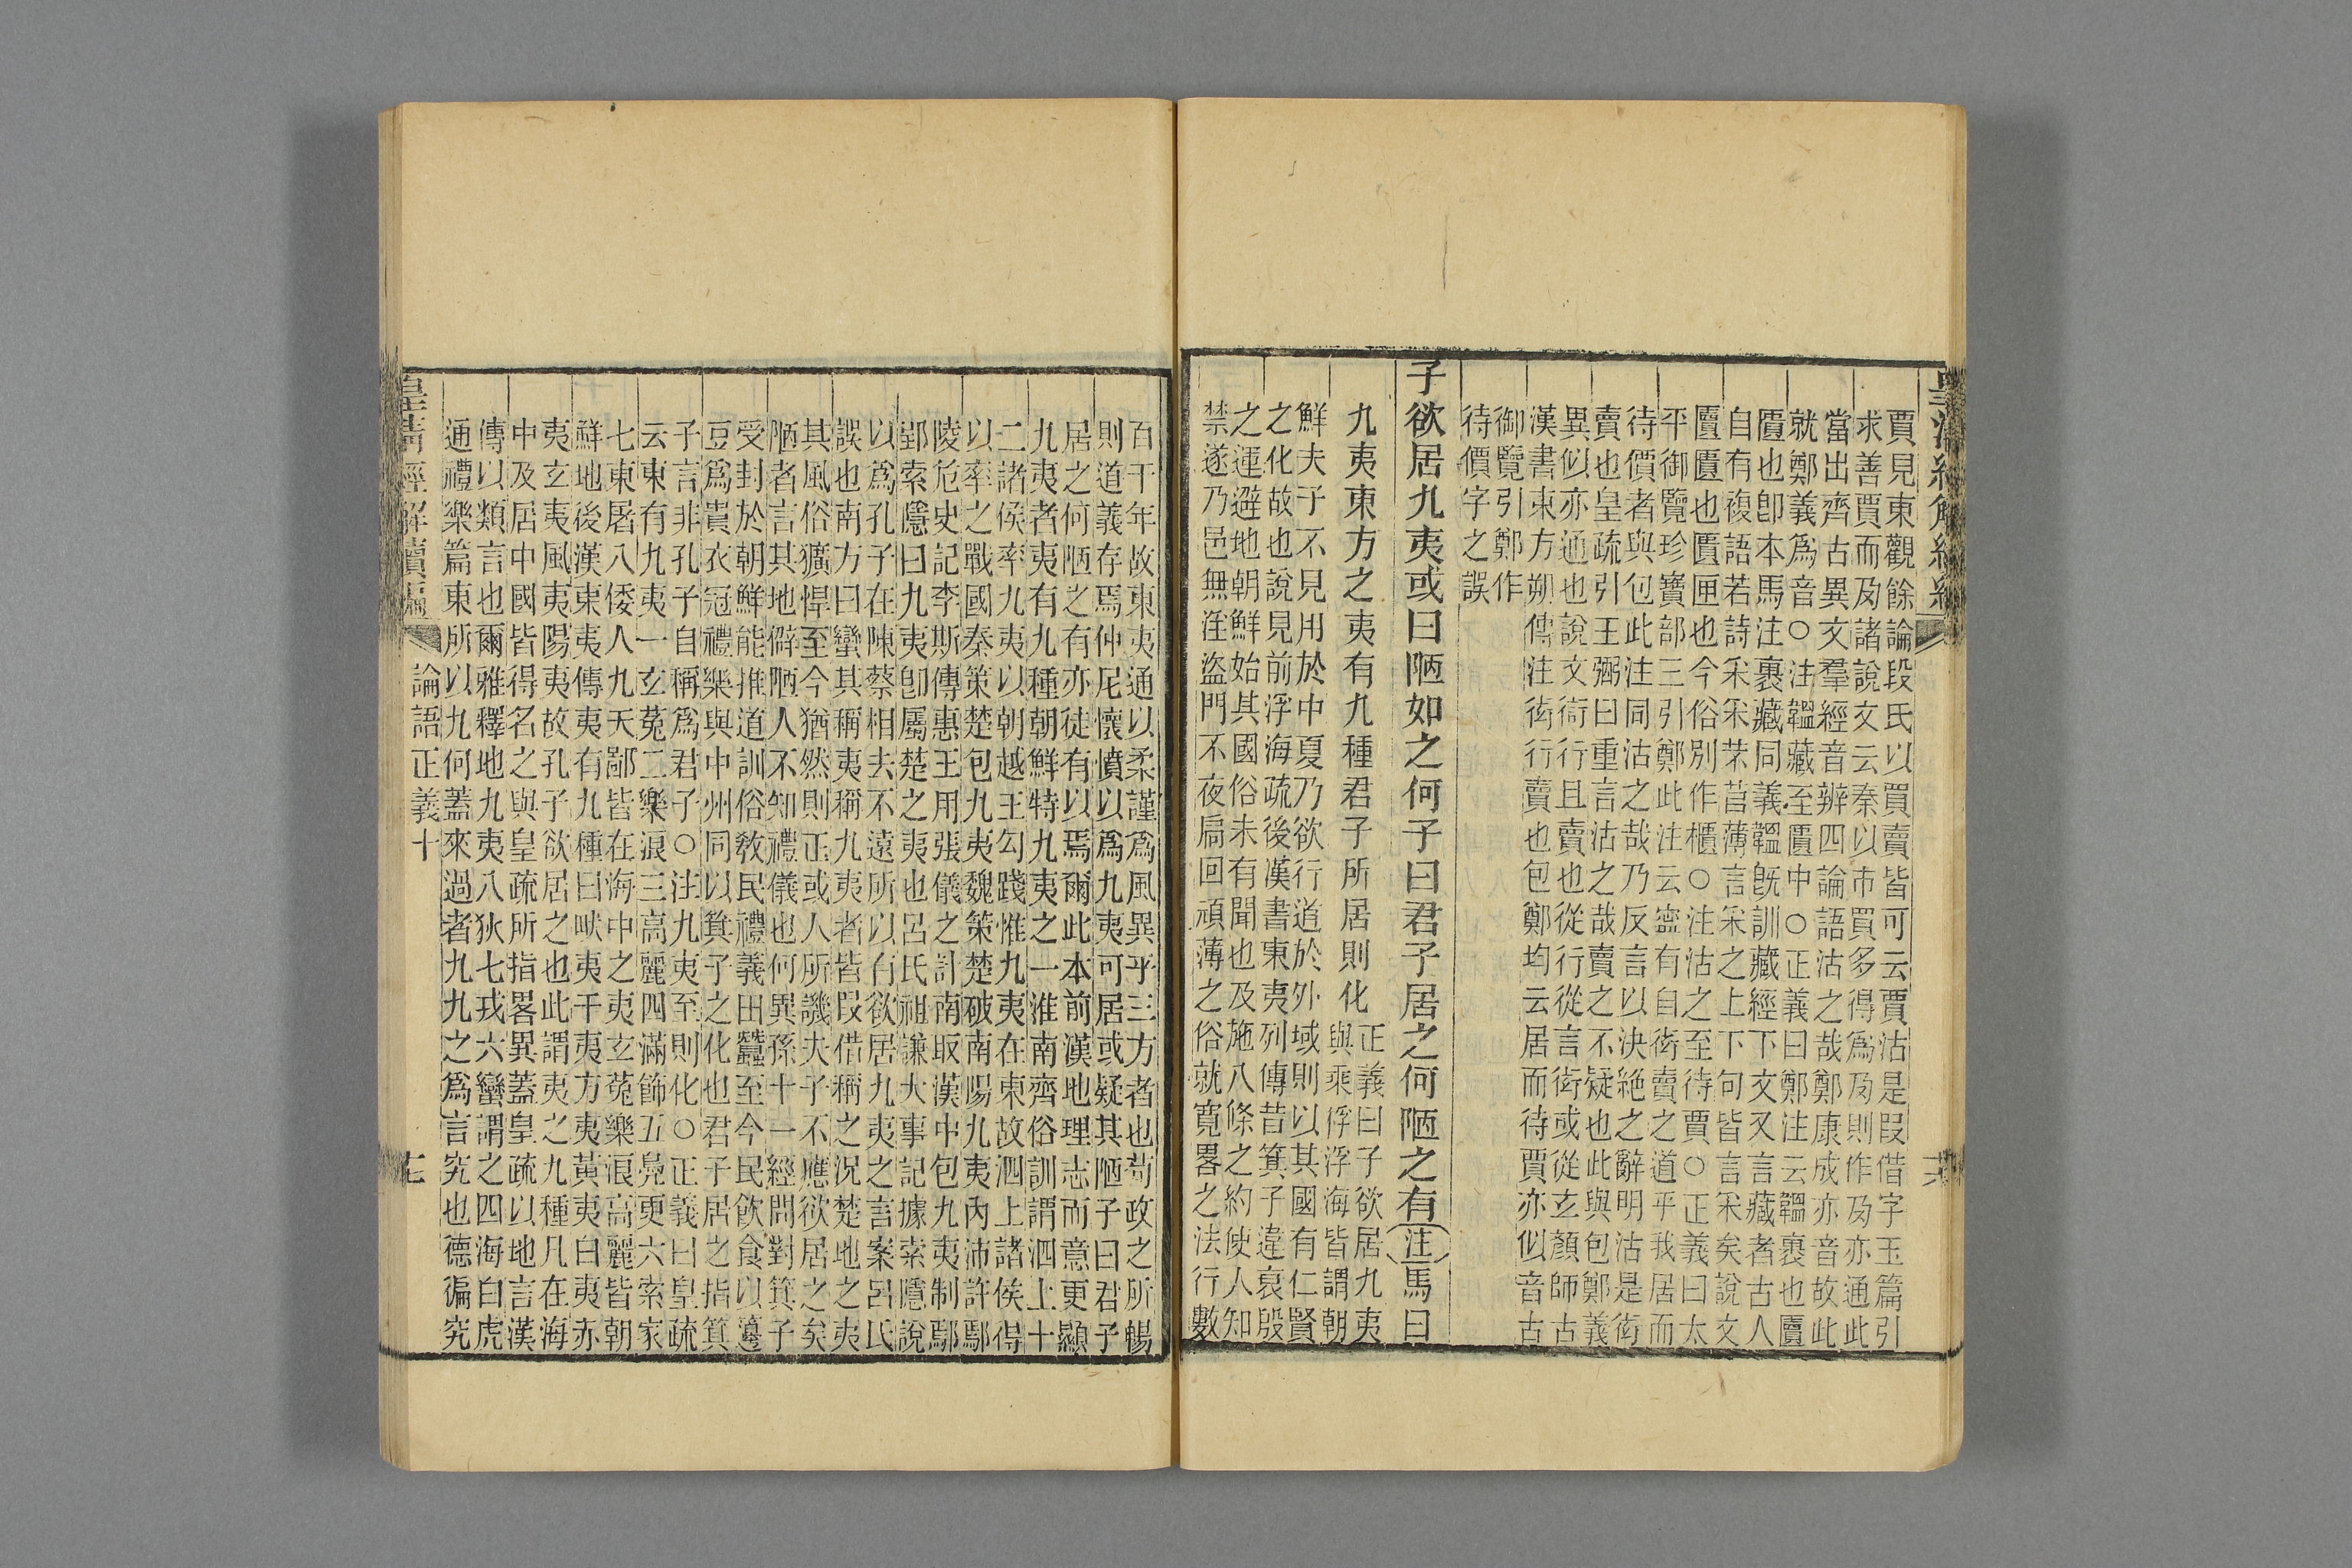 皇清經解續編
賈見東觀餘論段氏以買賣皆可云賈沽是叚借字玉篇引
求善賈而夃諸說文云秦以市買多得爲夃則作夃亦通此
當出齊古異文羣經音辨四論語沽之哉鄭康成亦音故此
就鄭義爲音○注韞藏至匵中○正義曰鄭注云韞裹也匵
匵也卽本馬注裹藏同義韞旣訓藏經下文又言藏者古人
自有複語若詩采采芣苢薄言采之上下句皆言采矣說文
匵匱也匱匣也今俗別作櫃○注沽之至待賈○正義曰太
平御覽珍寶部三引鄭此注云寍有自衒賣之道乎我居而
待價者與包此注同沽之哉乃反言以決絕之辭明沽是衒
賣也皇疏引王弼曰重言沽之哉賣之不疑也此與包鄭義
異似亦通也說文衒行且賣也從行從言衒或從玄顏師古
漢書東方朔傳注衒行賣也包鄭均云居而待賈亦似音古
御覽引鄭作
待價字之誤
子欲居九夷或曰陋如之何子曰君子居之何陋之有注馬曰
九夷東方之夷有九種君子所居則化
正義曰子欲居九夷
與乘桴浮海皆謂朝
鮮夫子不見用於中夏乃欲行道於外域則以其國有仁賢
之化故也說見前浮海疏後漢書東夷列傳昔箕子違衰殷
之運避地朝鮮始其國俗未有聞也及施八條之約使人知
禁遂乃邑無淫盜門不夜扃回頑薄之俗就寬畧之法行數
百千年故東夷通以柔謹爲風異乎三方者也苟政之所暢
則道義存焉仲尼懷憤以爲九夷可居或疑其陋子曰君子
居之何陋之有亦徒有以焉爾此本前漢地理志而意更顯
九夷者夷有九種朝鮮特九夷之一淮南齊俗訓謂泗上十
二諸侯率九夷以朝越王勾踐惟九夷在東故泗上諸侯得
以率之戰國秦策楚包九夷魏策楚破南陽九夷內沛許鄢
陵危史記李斯傳惠王用張儀之計南取漢中包九夷制鄢
郢索隱曰九夷卽屬楚之夷也呂氏祖謙大事記據索隱說
以爲孔子在陳蔡相去不遠所以有欲居九夷之言案呂氏
誤也南方曰蠻其稱夷稱九夷者皆叚借稱之況楚地之夷
其風俗獷悍至今猶然則正或人所譏夫子不應欲居之矣
陋者言其地僻陋人不知禮儀也何異孫十一經問對箕子
受封於朝鮮能推道訓俗敎民禮義田蠶至今民飮食以籩
豆爲貴衣冠禮樂與中州同以箕子之化也君子居之指箕
子言非孔子自稱爲君子○注九夷至則化○正義曰皇疏
云東有九夷一玄菟二樂浪三高麗四滿飾五鳧更六索家
七東屠八倭人九天鄙皆在海中之夷玄菟樂浪高麗皆朝
鮮地後漢東夷傳夷有九種曰畎夷干夷方夷黃夷白夷赤
夷玄夷風夷陽夷故孔子欲居之也此謂夷之九種凡在海
中及居中國皆得名之與皇疏所指畧異蓋皇疏以地言漢
傳以類言也爾雅釋地九夷八狄七戎六蠻謂之四海白虎
通禮樂篇東所以九何蓋來過者九九之爲言究也德徧究
皇清經解續編
論語正義十